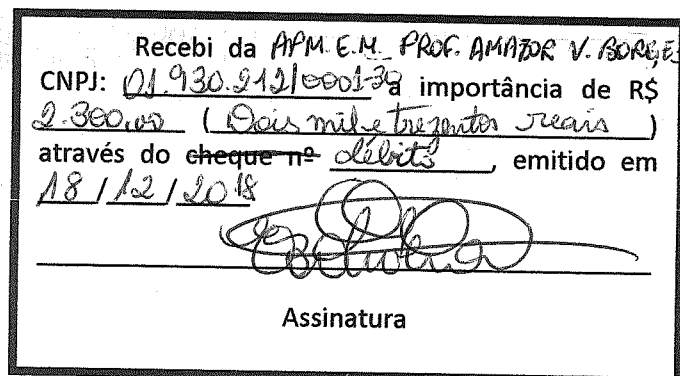 Recebi da APM E.M. PROF. AMADOR V. BORGES
CNPJ: 01.930.212/0001-39 a importância de R$
2.300,00 (Dois mil e trezentos reais)
através do cheque nº débito, emitido em
18/12/2018
Assinatura